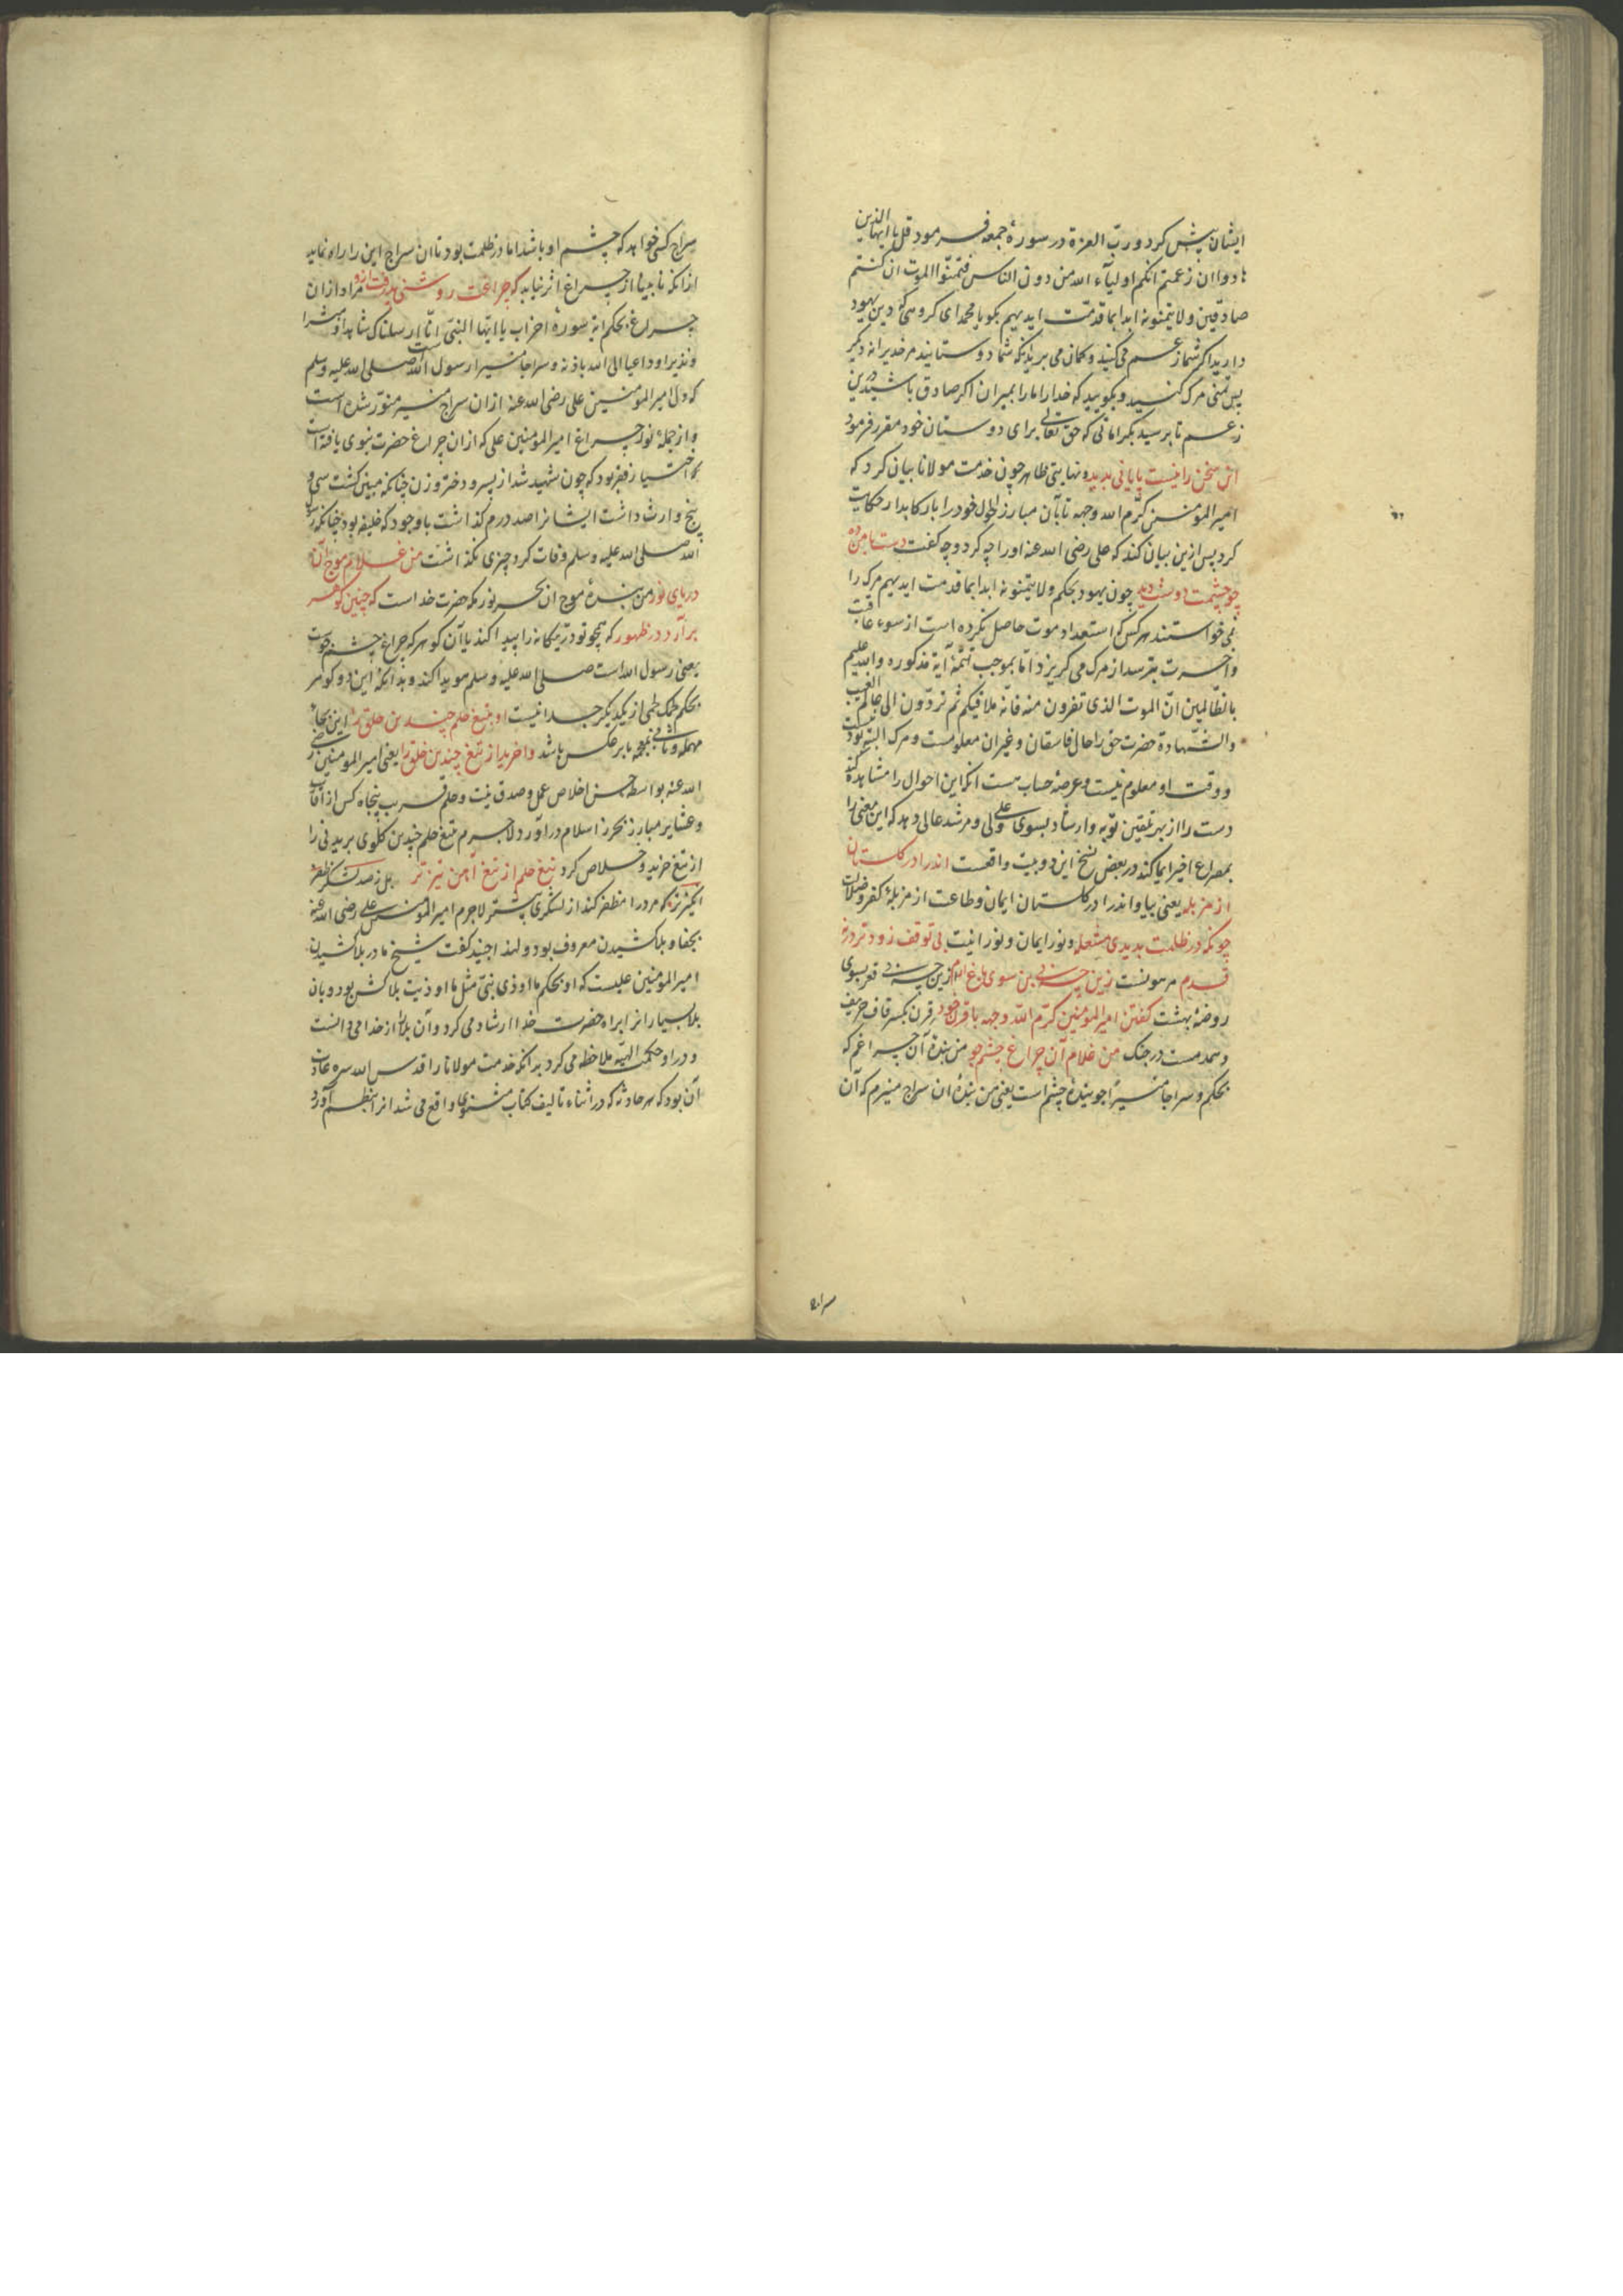 ایشان پیش کرد و ربّ العزة در سورهٔ جمعه فرمود قل یا ایها الذین
هادوا ان زعمتم انکم اولیآء الله من دون الناس فتمنّوا الموت ان کنتم
صادقین ولا یتمنونه ابدا بما قدمت ایدیهم بکو یا محمد ای کروهی که دین یهود
دارید اکر شما زعم می کنید و کمان می برید که شما دوستانید مر خدیرا نه دیکر
پس تمنی مرک کنید و بکویید که خدا را ما را بمیران اکر صادق باشید درین
زعم تا برسید بکراماتی که حق تعالی برای دوستان خود مقرر فرمود
این سخن را نیست پایانی پدید و نهایتی ظاهر چون خدمت مولانا بیان کرد که
امیر المؤمنین کرّم الله وجهه تا بآن مبارز احوال خود را با رکابدار حکایت
کرد پس ازین بیان کند که علی رضی الله عنه او را چه کرد و چه کفت دست با من ده
چو چشمت دوست دید چون یهود بحکم ولا یتمنونه ابدا بما قدمت ایدیهم مرک را
نمی خواستند هر کس که استعداد موت حاصل نکرده است از سوء عاقبت
و آخرت بترسد از مرک می کریزد امّا بموجب تتمّهٔ آیهٔ مذکوره والله علیم
بالظّالمین انّ الموت الذی تفرون منه فانّه ملاقیکم ثم تردّون الی عالم الغیب
والشّهادة حضرت حق را حال فاسقان و غیر ان معلومست و مرک البته بودنیست
و وقت او معلوم نیست و عرصهٔ حساب هست انکه این احوال را مشاهده کند
دست را از بهر تلقین توبه و ارشاد بسوی علی ولی و مرشد عالی دهد که این معنی را
بمصراع اخیر ایما کند در بعض نسخ این دو بیت واقعست اندرا در کلستان
از مزبله یعنی بیا و اندرا در کلستان ایمان و طاعت از مزبلهٔ کفر و ضلالت
چونکه در ظلمت بدیدی مشعله و نور ایمان و نورانیت بی توقف زودتر در نه
قدم مر سونست زین چه بی بن سوی باغ ارم زین چه بی قعر بسوی
روضهٔ بهشت کفتن امیر المؤمنین کرّم الله وجهه با قرن خود قرن بکسر قاف حریف
و همدمست در جنک من غلام آن چراغ چشم جو من بندهٔ آن چراغم که
بحکم و سراجا منیرًا جویندهٔ چشم است یعنی من بندهٔ ان سراج منیرم که آن
سراج
سراج کسی خواهد که چشم او باشد اما در ظلمت بود تا ان سراج این را راه نماید
از انکه نابینا از چراغ اثر نیابد که چراغت روشنی پذرفت ازو مراد از ان
چراغ بحکم ایهٔ سورهٔ احزاب یا ایها النبیّ انّا ارسلناک شاهدا و مبشرا
و نذیرا و داعیا الی الله باذنه و سراجا منیرا رسول الله است صلی الله علیه وسلم
که دل امیر المؤمنین علی رضی الله عنه از ان سراج منیر منوّر شده است
و از جملهٔ نور چراغ امیر المؤمنین علی که از ان چراغ حضرت نبوی یافته است
اختیار فقر بود که چون شهید شد از پسر و دختر و زن چنانکه مبین کشت سی و
پنج وارث داشت ایشانرا صد درم کذاشت با وجود که خلیفه بود چنانکه رسول
الله صلی الله علیه وسلم وفات کرد چیزی نکذاشت من غلام موج آن
دریای نور من بندهٔ موج ان بحر نورم که حضرت خداست که چنین کوهر
برآرد در ظهور که همچو تو درّ یکانه را پیدا کند یا آن کوهر که چراغ چشم جوست
یعنی رسول الله است صلی الله علیه وسلم هویدا کند و بدانکه این دو کوهر
بحکم لحمک لحمی از یکدیکر جدا نیست او بتیغ حلم چندین خلق را این بجاء
مهمله و ثانی بمعجمه یا بر عکس باشد واخرید از تیغ چندین خلق را یعنی امیر المومنین رضی
الله عنه بواسطه حسن اخلاص عمل و صدق نیت و حلم قریب پنجاه کس از اقارب
و عشایر مبارز بحرز اسلام در آورد لاجرم بتیغ حلم چندین کلوی بریدنی را
از تیغ خرید و خلاص کرد تیغ حلم از تیغ آهن تیزتر بل ز صد لشکر ظفر
انکیزتر که مرد را مظفر کند از لشکری بیشتر لاجرم امیر المؤمنین علی رضی الله عنه
بجفا و بلا کشیدن معروف بود و لهذا جنید کفت شیخ ما در بلا کشیدن
امیر المؤمنین علیست که او بحکم ما اوذی نبیّ مثل ما اوذیت بلا کش بود و بان
بلا بسیار انرا براه حضرت خدا ارشاد می کرد و آن بلا را از خدا می دانست
و در او حکمت الهیّه ملاحظه می کرد بدانکه خدمت مولانا را قدس الله سره عادت
آن بود که هر حادثه که در اثناء تالیف کتاب مثنوی واقع می شد انرا بنظم آورد